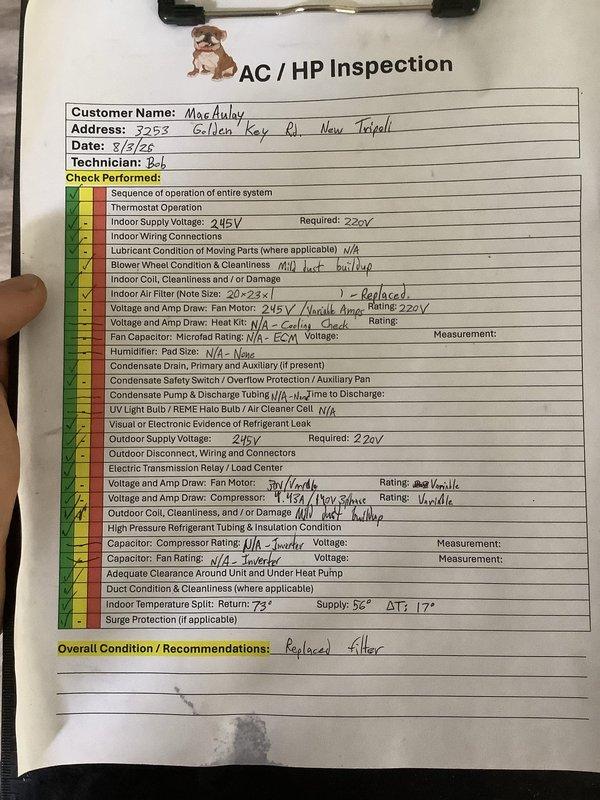 AC / HP Inspection
Customer Name: MacAulay
Address: 3253 Golden Key Rd. New Tripoli
Date: 8/3/25
Technician: Bob
Check Performed:
Sequence of operation of entire system
Thermostat Operation
Indoor Supply Voltage: 245V Required: 220V
Indoor Wiring Connections
Lubricant Condition of Moving Parts (where applicable) N/A
Blower Wheel Condition & Cleanliness Mild dust buildup
Indoor Coil, Cleanliness and / or Damage
Indoor Air Filter (Note Size: 20x23x1 ) - Replaced.
Voltage and Amp Draw: Fan Motor: 245V / Variable Amps Rating: 220V
Voltage and Amp Draw: Heat Kit: N/A - Cooling Check Rating:
Fan Capacitor: Microfad Rating: N/A - ECM Voltage: Measurement:
Humidifier: Pad Size: N/A - None
Condensate Drain, Primary and Auxiliary (if present)
Condensate Safety Switch / Overflow Protection / Auxiliary Pan
Condensate Pump & Discharge Tubing N/A - None Time to Discharge:
UV Light Bulb / REME Halo Bulb / Air Cleaner Cell N/A
Visual or Electronic Evidence of Refrigerant Leak
Outdoor Supply Voltage: 245V Required: 220V
Outdoor Disconnect, Wiring and Connectors
Electric Transmission Relay / Load Center
Voltage and Amp Draw: Fan Motor: / Variable Rating: Variable
Voltage and Amp Draw: Compressor: 4.43A / 140V 3phase Rating: Variable
Outdoor Coil, Cleanliness, and / or Damage Mild dust buildup
High Pressure Refrigerant Tubing & Insulation Condition
Capacitor: Compressor Rating: N/A - Inverter Voltage: Measurement:
Capacitor: Fan Rating: N/A - Inverter Voltage: Measurement:
Adequate Clearance Around Unit and Under Heat Pump
Duct Condition & Cleanliness (where applicable)
Indoor Temperature Split: Return: 73° Supply: 56° ΔT: 17°
Surge Protection (if applicable)
Overall Condition / Recommendations: Replaced filter